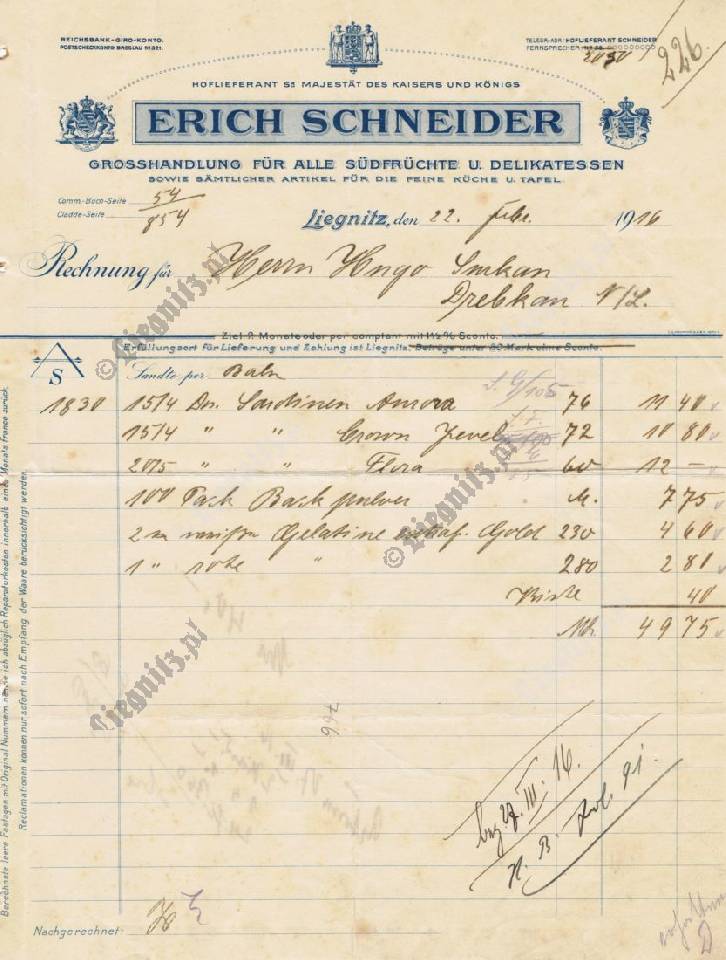 REICHSBANK-GIRO-KONTO.
POSTSCHECKKONTO BRESLAU
TELEGR.-ADR. HOFLIEFERANT SCHNEIDER
FERNSPRECHER
2050
226.
HOFLIEFERANT Sr MAJESTÄT DES KAISERS UND KÖNIGS
ERICH SCHNEIDER
GROSSHANDLUNG FÜR ALLE SÜDFRÜCHTE U. DELIKATESSEN
SOWIE SÄMTLICHER ARTIKEL FÜR DIE FEINE KÜCHE U. TAFEL.
Comm.-Buch-Seite 54
Cladde-Seite 854
Liegnitz, den 22. Febr. 1916
Rechnung für Herrn Hugo
Drebkau N/L.
Ziel 2 Monate oder per comptant mit 1½% Sconto.
Erfüllungsort für Lieferung und Zahlung ist Liegnitz. Beträge unter 80 Mark ohne Sconto.
AS
Sandte per Bahn
1830 15/4 Dos. Sardinen Aurora 76 11 40
15/4 " " Crown Jewel 72 10 80
20/5 " " Flora 60 12 —
100 Pack Backpulver M. 7 75
2 weisse Gelatine Gold 230 4 60
1 " rote " 280 2 80
Kiste 40
Mk. 49 75
766
bez. 27. III. 16.
N. B. 91.
Nachgerechnet:
Berechnete leere Fastagen mit Original Nummern nehme ich abzüglich Reparaturkosten innerhalb eines Monats franco zurück.
Reclamationen können nur sofort nach Empfang der Waare berücksichtigt werden.
© Liegnitz.pl
© Liegnitz.pl
Liegnitz.pl